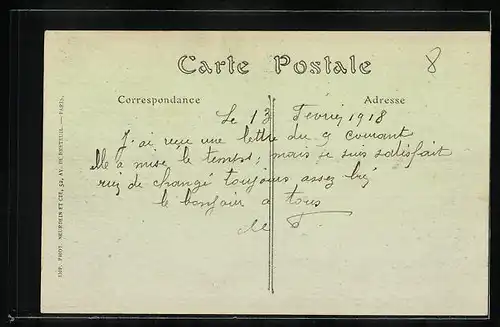 Carte Postale
8
Correspondance
Adresse
Le 13 Fevrier 1918
J'ai reçu une lettre du 9 courant
elle a mise le temps, mais je suis satisfait
rien de changé toujours assez bien
le bonjour a tous
IMP. PHOT. NEURDEIN ET CIE, 52, AV. DE BRETEUIL. — PARIS.